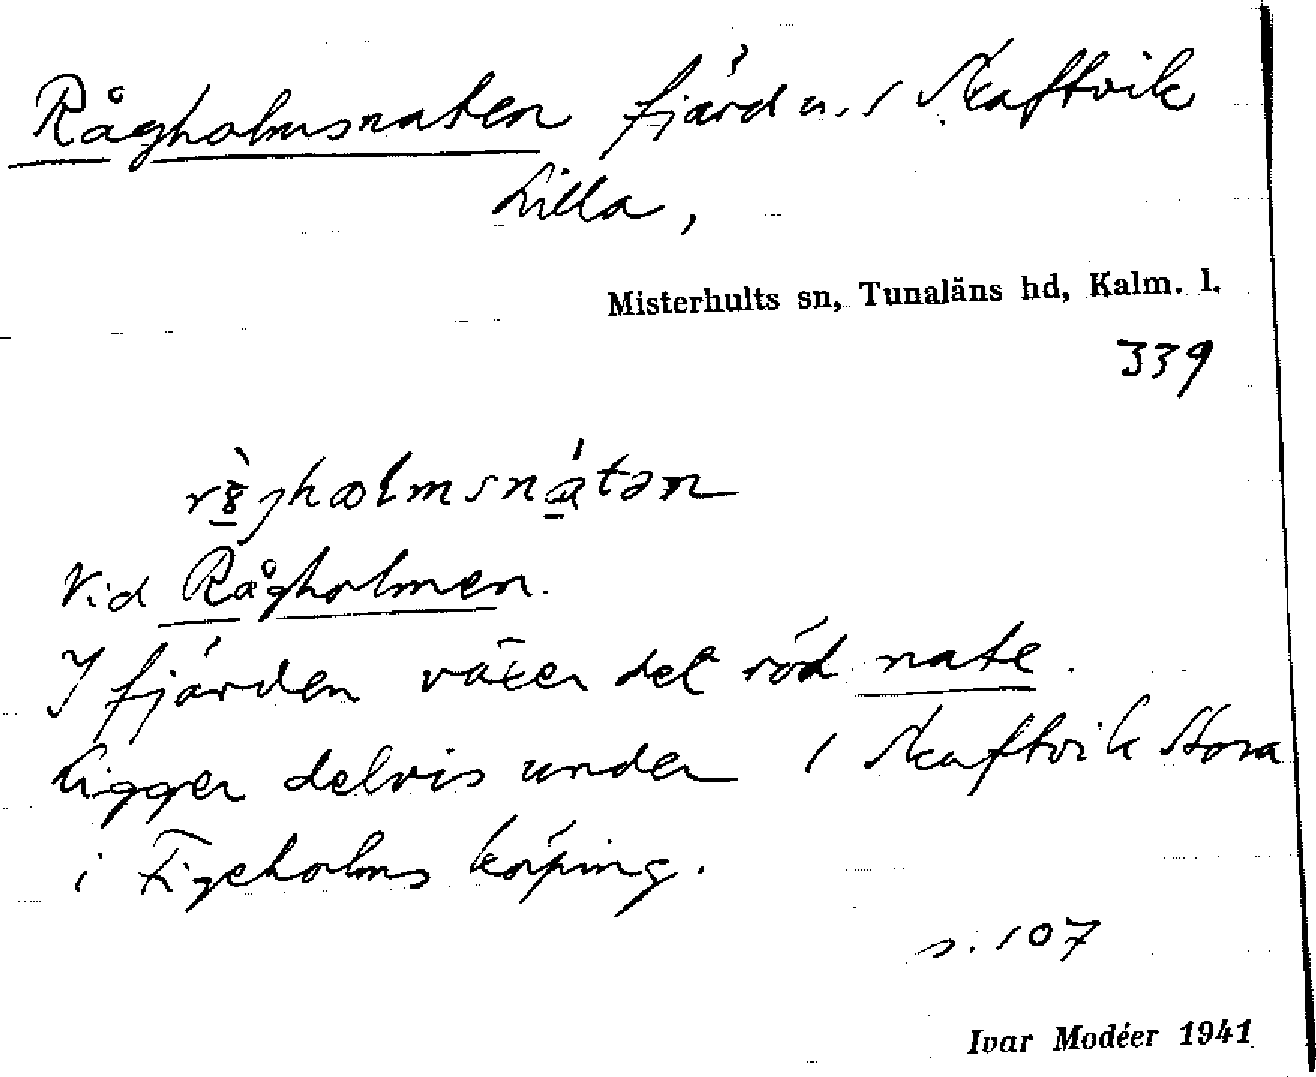 Rågholmsnaten fjärd u. 1 Skaftvik
Lilla,
Misterhults sn, Tunaläns hd, Kalm. l.
339
Vid Rågholmen.
I fjärden växer det röd nate.
Ligger delvis under 1 Skaftvik Stora
i Figeholms köping.
s. 107
Ivar Modéer 1941